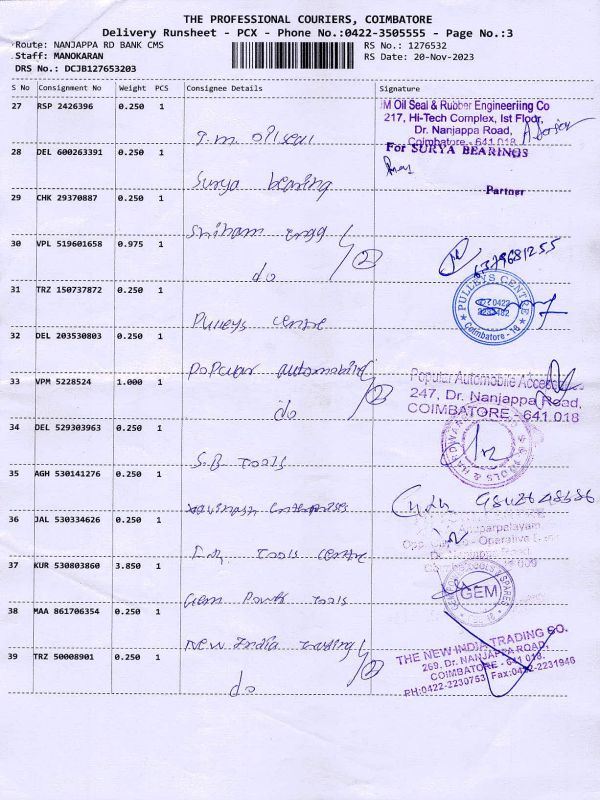 THE PROFESSIONAL COURIERS, COIMBATORE
Delivery Runsheet - PCX - Phone No.:0422-3505555 - Page No.:3
Route: NANJAPPA RD BANK CMS
RS No.: 1276532
Staff: MANOKARAN
RS Date: 20-Nov-2023
DRS No.: DCJB127653203
S No Consignment No Weight PCS Consignee Details Signature
27 RSP 2426396 0.250 1
J.M. oil seal
JM Oil Seal & Rubber Engineeriing Co
217, Hi-Tech Complex, Ist Floor,
Dr. Nanjappa Road,
Coimbatore - 641 018
28 DEL 600263391 0.250 1
Surya bearing
For SURYA BEARINGS
Partner
29 CHK 29370887 0.250 1
engg
30 VPL 519601658 0.975 1
do 2
6379681255
31 TRZ 150737872 0.250 1
Pulleys centre
PULLEYS CENTRE
Coimbatore - 18
32 DEL 203530803 0.250 1
Popular automobile
33 VPM 5228524 1.000 1
do 2
Popular Automobile Access
247, Dr. Nanjappa Road,
COIMBATORE - 641 018
34 DEL 529303963 0.250 1
S.B tools
35 AGH 530141276 0.250 1
enterprises
36 JAL 530334626 0.250 1
tools centre
37 KUR 530803860 3.850 1
Gem Power tools
GEM
38 MAA 861706354 0.250 1
New India trading
39 TRZ 50008901 0.250 1
do 2
THE NEW INDIA TRADING CO.
269, Dr. NANJAPPA ROAD,
COIMBATORE - 641 018.
PH:0422-2230753 Fax:0422-2231946